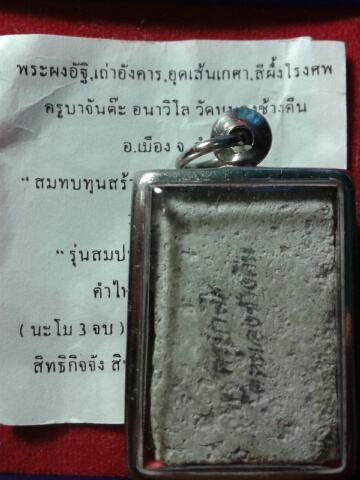 พระผงอัฐิ,เถ่าอังคาร,อุดเส้นเกศา.สีผึ้งโรงศพ
ครูบาจันต๊ะ อนาวิโล วัดหนองช้างคืน
อ.เมือง จ.
“ สมทบทุนสร้า
“ รุ่นสมป
คำไห
( นะโม 3 จบ )
สิทธิกิจจัง สิ
ครูบาจันต๊ะ
วัดหนองช้างคืน